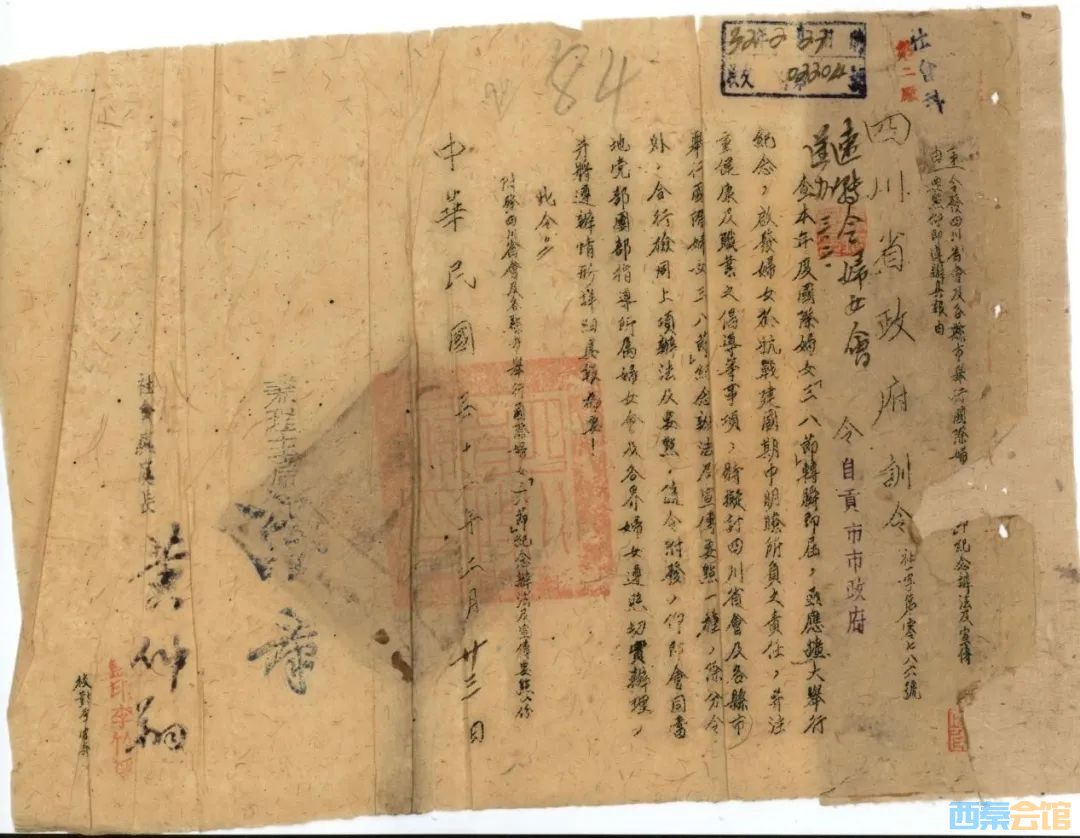 社會科
第二股
四川省政府訓令
社一字第零七八六號
事由
令發四川省會及各縣市舉行國際婦
節紀念辦法及宣傳
要點仰即遵辦具報由
令自貢市市政府
速轉令婦女會
遵办
查本年度國際婦女「三八」節轉瞬即屆,亟應擴大舉行
紀念,啟發婦女於抗戰建國期中明瞭所負之責任,并注
重健康及職業之倡導等事項,茲擬訂四川省會及各縣市
舉行國際婦女三八節紀念辦法及宣傳要點一種,除分令
外,合行檢同上項辦法及要點,隨令附發,仰即會同當
地党部團部指導所属婦女會及各界婦女遵照切實辦理,
并將遵辦情形詳細具報為要!
此令。
附發四川省會及各縣市舉行國際婦女「三八」節紀念辦法及宣傳要點一份
中華民國三十二年二月廿三日
兼理主席
張羣
社會處處長
黃仲翔
84
32 2 27
收文 03304
西秦会馆